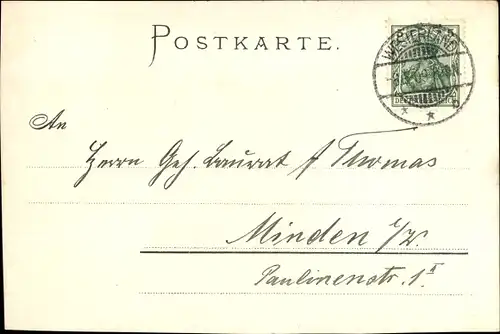 POSTKARTE.
WESTERLAND
DEUTSCHES REICH
An
Herrn Geh. Baurat Thomas
Minden i/W.
Paulinenstr. 1 I